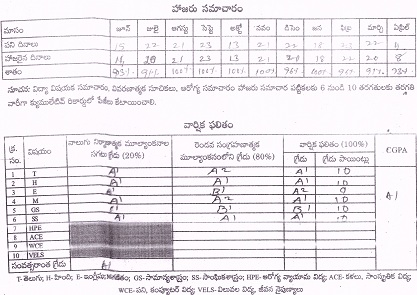 హాజరు సమాచారం
మాసం జూన్ జులై ఆగస్టు సెప్టె అక్టో నవం డిసెం జన ఫిబ్ర మార్చి ఏప్రిల్
పని దినాలు 15 22 21 23 13 21 22 18 23 22
హాజరైన దినాలు 20 21 23 13 21 18 22 20 8
శాతం
సూచన: విద్యా విషయక సమాచారం, వివరణాత్మక సూచికలు, ఆరోగ్య సమాచారం హాజరు సమాచార పట్టికలకు 6 నుండి 10 తరగతులకు తరగతి
వారీగా క్యుములేటివ్ రికార్డులో పేజీలు కేటాయించాలి.
వార్షిక ఫలితం
క్ర. సం. విషయం నాలుగు నిర్మాణాత్మక మూల్యాంకనాల సగటు గ్రేడు (20%) రెండవ సంగ్రహణాత్మక మూల్యాంకనంలోని గ్రేడు (80%) వార్షిక ఫలితం (100%) గ్రేడు గ్రేడు పాయింట్లు CGPA
1 T A1 A2 A1 10
2 H A1 A1 A1 10
3 E A1 B1 A2 9
4 M A1 A2 A1 10
5 GS A1 B1 A1 10
6 SS A1 A1 A1 10
7 HPE
8 ACE
9 WCE
10 VELS
A1
సంవత్సరాంత గ్రేడు A1
T-తెలుగు, H-హిందీ; E-ఇంగ్లీషు; GS-సామాన్యశాస్త్రం; SS-సాంఘికశాస్త్రం; HPE-ఆరోగ్య వ్యాయామ విద్య; ACE-కళలు, సాంస్కృతిక విద్య,
WCE-పని, కంప్యూటర్ విద్య VELS-విలువల విద్య, జీవన నైపుణ్యాలు